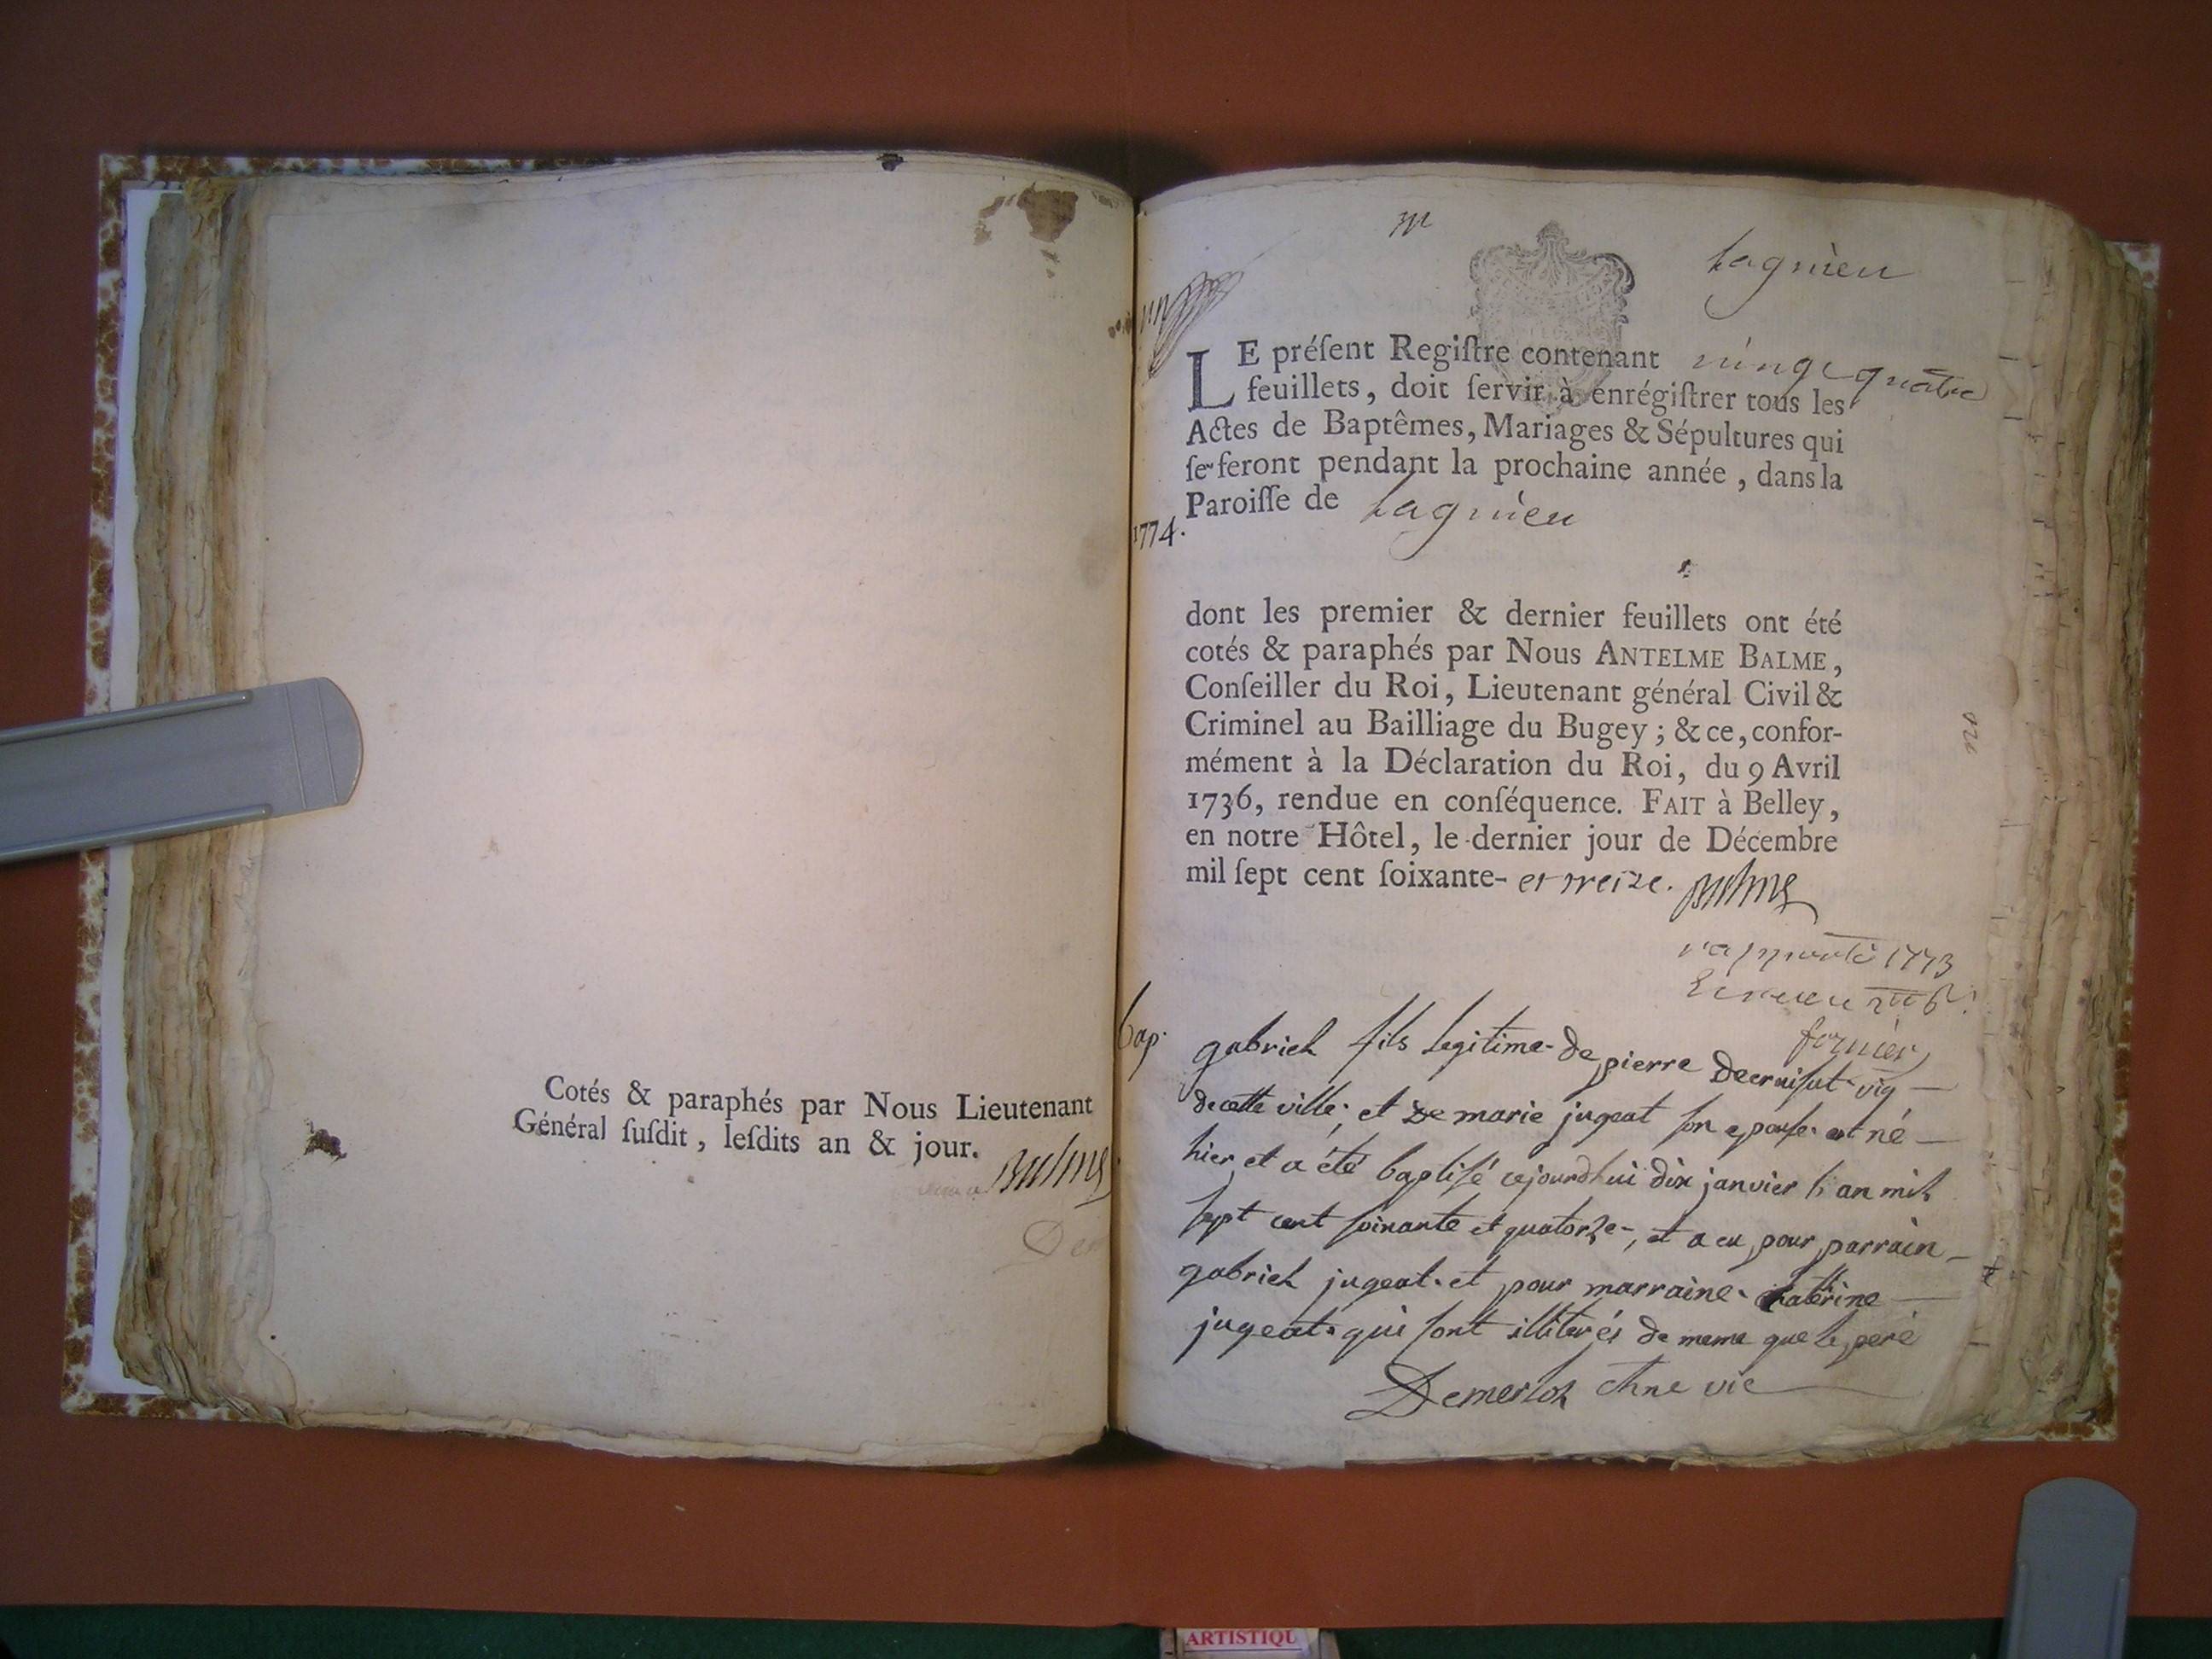 Cotés & paraphés par Nous Lieutenant
Général ſuſdit, leſdits an & jour.
Balme
Lagnieu
LE préſent Regiſtre contenant vingt quatre
feuillets, doit ſervir à enrégiſtrer tous les
Actes de Baptêmes, Mariages & Sépultures qui
ſe feront pendant la prochaine année, dans la
Paroiſſe de Lagnieu
1774.
dont les premier & dernier feuillets ont été
cotés & paraphés par Nous ANTELME BALME,
Conſeiller du Roi, Lieutenant général Civil &
Criminel au Bailliage du Bugey; & ce, confor-
mément à la Déclaration du Roi, du 9 Avril
1736, rendue en conſéquence. FAIT à Belley,
en notre Hôtel, le dernier jour de Décembre
mil ſept cent ſoixante- et treize. Balme
1773
bap.
gabriel fils legitime de pierre vig
de cette ville, et de marie jugeat son epouse est né
hier et a été baptisé cejourdhui dix janvier l'an mil
sept cent soixante et quatorze, et a eu pour parrain
gabriel jugeat et pour marraine catherine
jugeat qui sont illiterés de meme que le pere
ARTISTIQU